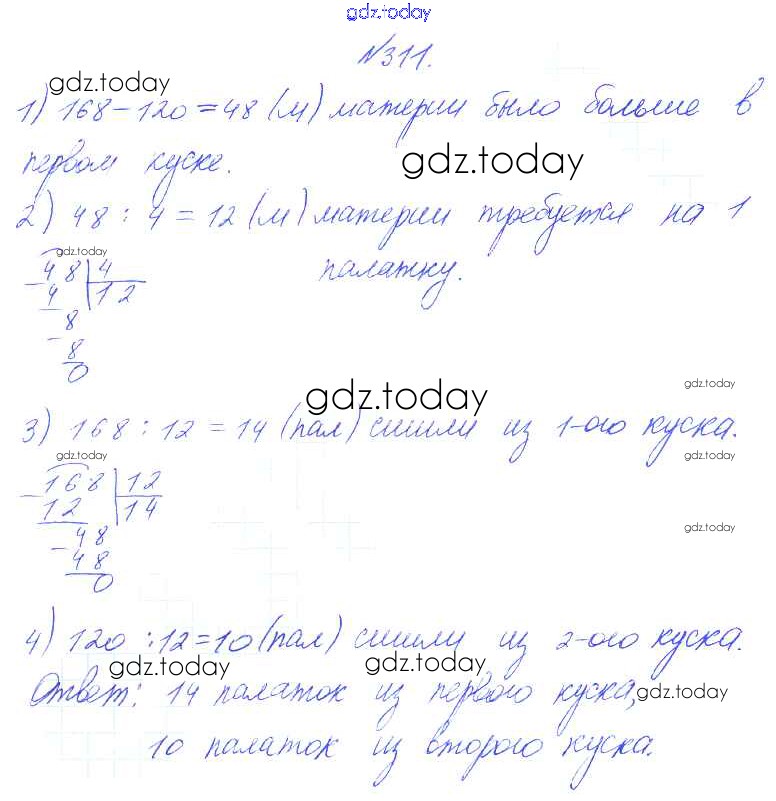 gdz.today
№311.
gdz.today
1) 168 - 120 = 48 (м) материи было больше в
первом куске.
gdz.today
2) 48 : 4 = 12 (м) материи требуется на 1
палатку.
gdz.today
- 48 | 4
4 | 12
- 8
8
0
gdz.today
gdz.today
3) 168 : 12 = 14 (пал) сшили из 1-ого куска.
gdz.today
gdz.today
- 168 | 12
12 | 14
- 48
48
0
gdz.today
4) 120 : 12 = 10 (пал) сшили из 2-ого куска.
gdz.today
gdz.today
Ответ: 14 палаток из первого куска,
gdz.today
10 палаток из второго куска.